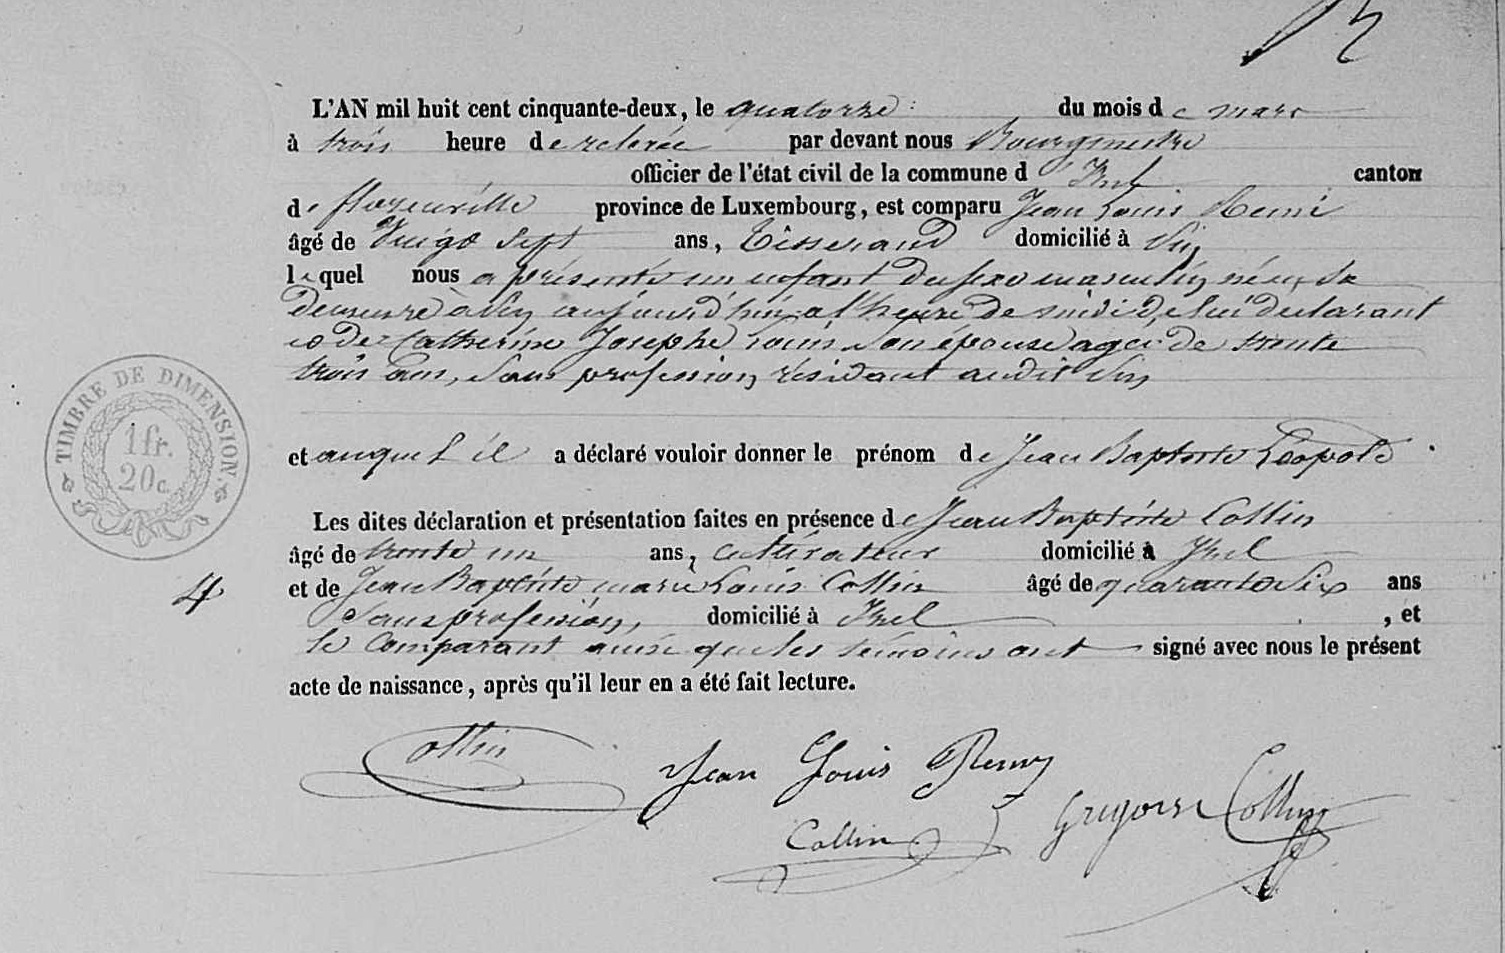 L'AN mil huit cent cinquante-deux, le quatorze du mois de mars
à trois heure de relevée par devant nous Bourgmestre
officier de l'état civil de la commune d'Izel canton
de florenville province de Luxembourg, est comparu Jean Louis Remi
âgé de Vingt Sept ans, Tisserand domicilié à
lequel nous a présenté un enfant du sexe masculin né en Sa
demeure à aujourd'hui a l'heure de midi de lui declarant
et de Catherine Josephe Louis Son épouse agée de trente
trois ans, Sans profession résidant audit
et auquel il a déclaré vouloir donner le prénom de Jean Baptiste Léopold
TIMBRE DE DIMENSION.
1fr.
20c.
Les dites déclaration et présentation faites en présence de Jean Baptiste Collin
âgé de trente un ans, cultivateur domicilié à Izel
4
et de Jean Baptiste marie Louis Collin âgé de quarante Six ans
Sans profession, domicilié à Izel, et
le Comparant ainsi que les témoins ont signé avec nous le présent
acte de naissance, après qu'il leur en a été fait lecture.
Collin Jean Louis Remy
Collin Grégoire Collin